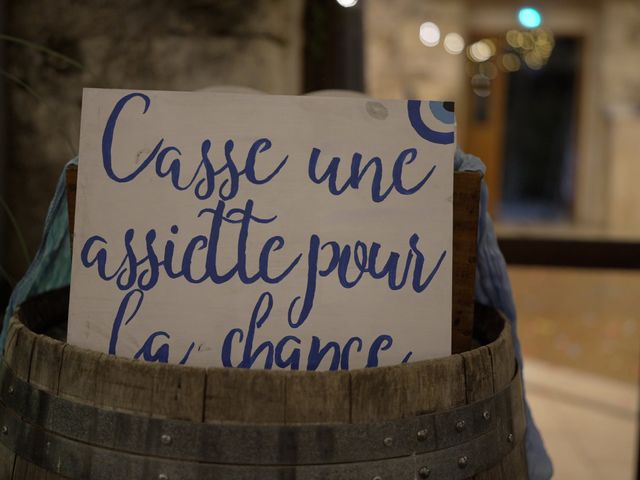 Casse une
assiette pour
la chance